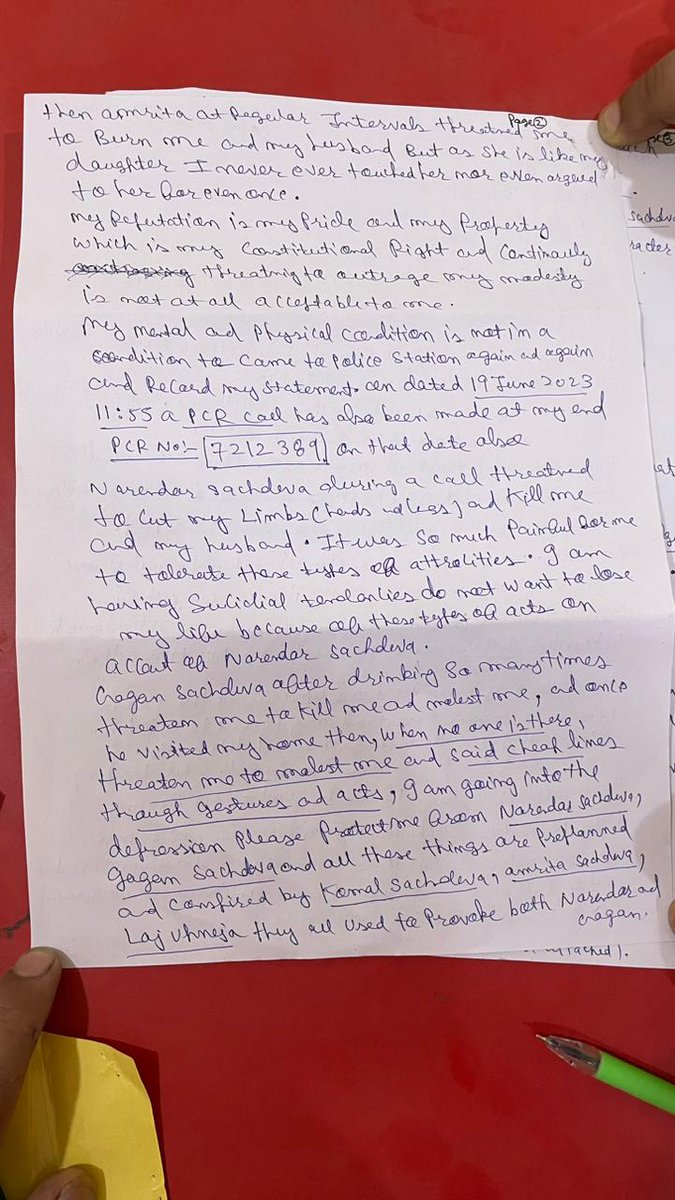 Page②
then amrita at Regular Intervals threatned me
to Burn me and my husband But as she is like my
daughter I never ever touched her nor even argued
to her for even once.
my Reputation is my Pride and my Property
which is my Constitutional Right and Continually
threatnig to outrage my modesty
is not at all acceptable to me.
My mental ad Physical condition is not in a
condition to came to Police Station again ad again
and Record my statement. on dated 19 June 2023
11:55 a PCR call has also been made at my end
PCR No:- 7212389 on that date also
Narendar Sachdeva during a call threatned
to cut my Limbs (hands nd legs) ad kill me
and my husband. It was so much Painful for me
to tolerate these types of attrolities. I am
having Sucidial tendanties do not want to lose
my life because of these types of acts on
account of Narendar Sachdeva.
Gagan Sachdeva after drinking so many times
threaten me to kill me ad molest me, ad once
he visited my home then, when no one is there,
threaten me to molest me and said cheap lines
through gestures ad acts, I am going into the
depression please Protect me from Narendar Sachdeva,
Gagan Sachdeva and all these things are preplanned
ad conspired by Komal Sachdeva, amrita Sachdeva,
Laj Uhneja they all used to Provoke both Narendar ad
Gagan.
sachdeva
racter
attached).